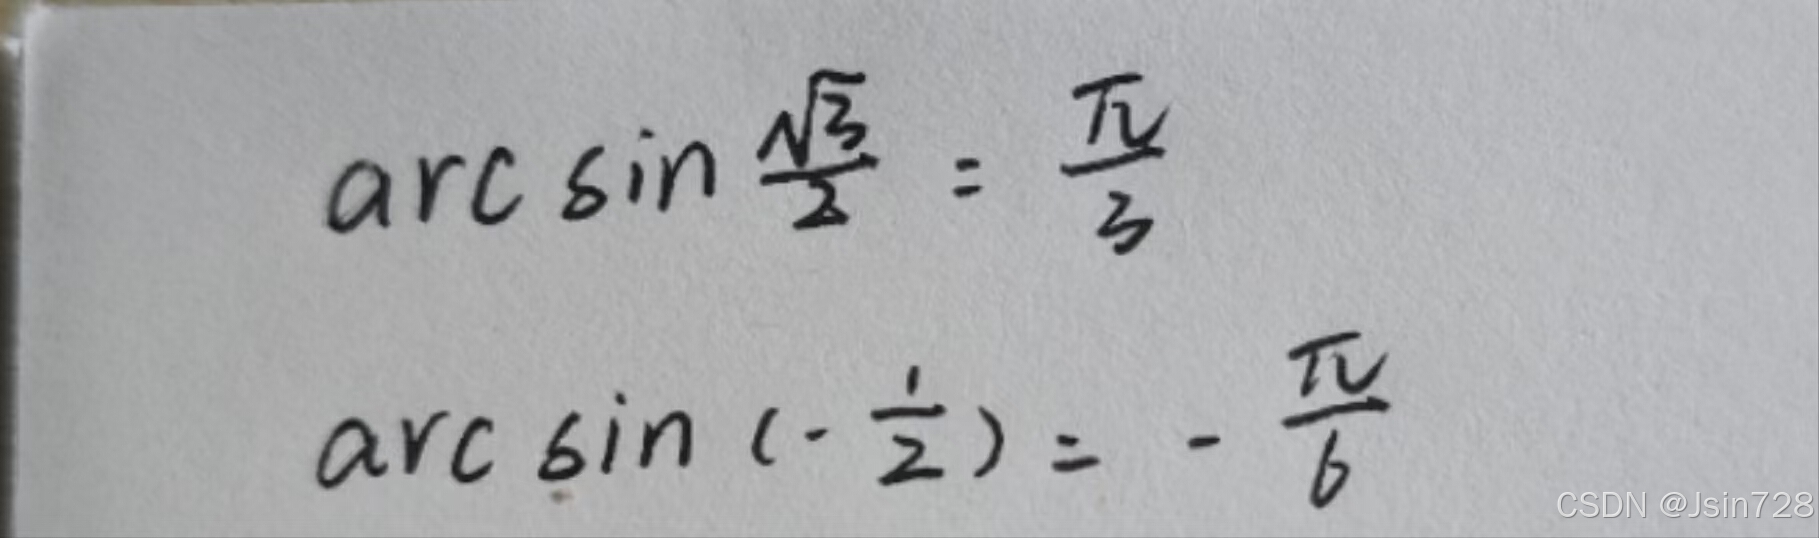 arc sin √3/2 = π/3
arc sin (- 1/2) = - π/6
CSDN @Jsin728